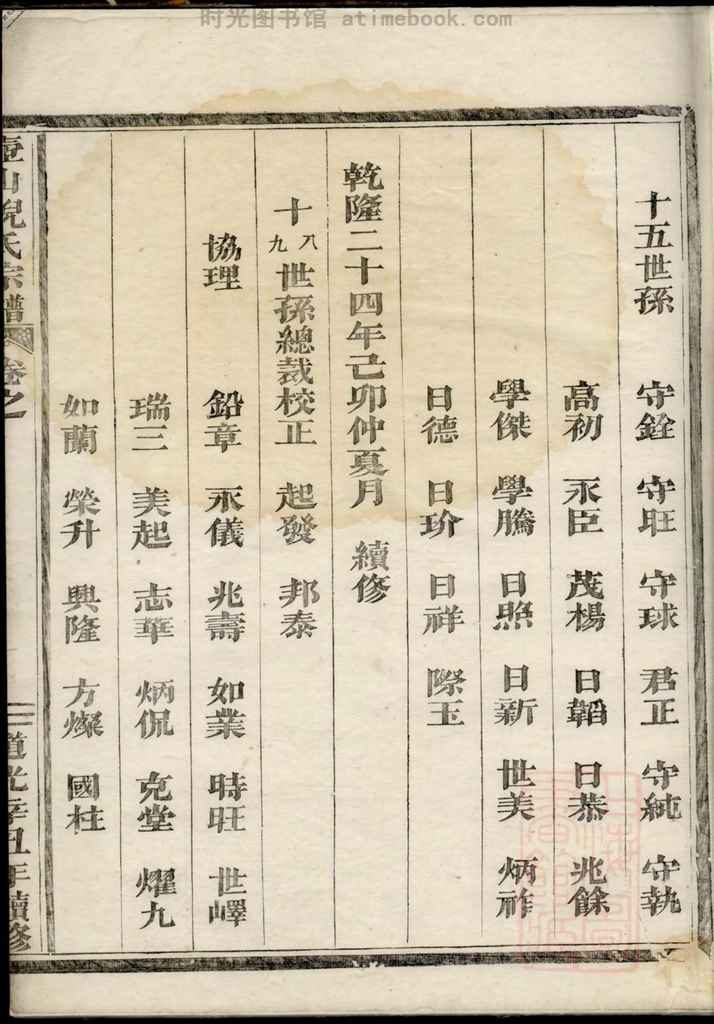 时光图书馆 atimebook.com
十五世孫 守銓 守旺 守球 君正 守純 守執
高初 永臣 茂楊 日韜 日恭 兆餘
學傑 學騰 日照 日新 世美 炳祚
日德 日玠 日祥 際玉
乾隆二十四年己卯仲夏月 續修
十八九世孫總裁校正 起發 邦泰
協理 鉛章 永儀 兆壽 如業 時旺 世嶧
瑞三 美起 志華 炳侃 克堂 燿九
如蘭 榮升 興隆 方燦 國柱
壺山倪氏宗譜 卷之 道光辛丑年續修